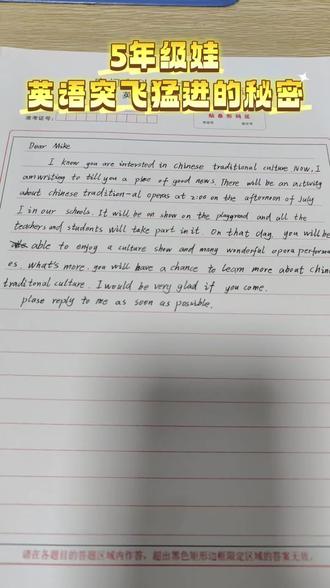 5年级娃
英语突飞猛进的秘密
准考证号:
贴条形码区
Dear Mike
I know you are intersted in chinese traditional culture. Now, I
am writing to till you a piece of good news. There will be an activity
about chinese tradition-al operas at 2:00 on the afternoon of July
1 in our schools. It will be on show on the playground and all the
teachers and students will take part in it. On that day, you will be
able to enjoy a culture show and many wonderful opera performanc
es. What's more, you will have a chance to learn more about chin
traditonal culture. I would be very glad if you come.
plase reply to me as soon as possible.
请在各题目的答题区域内作答，超出黑色矩形边框限定区域的答案无效。